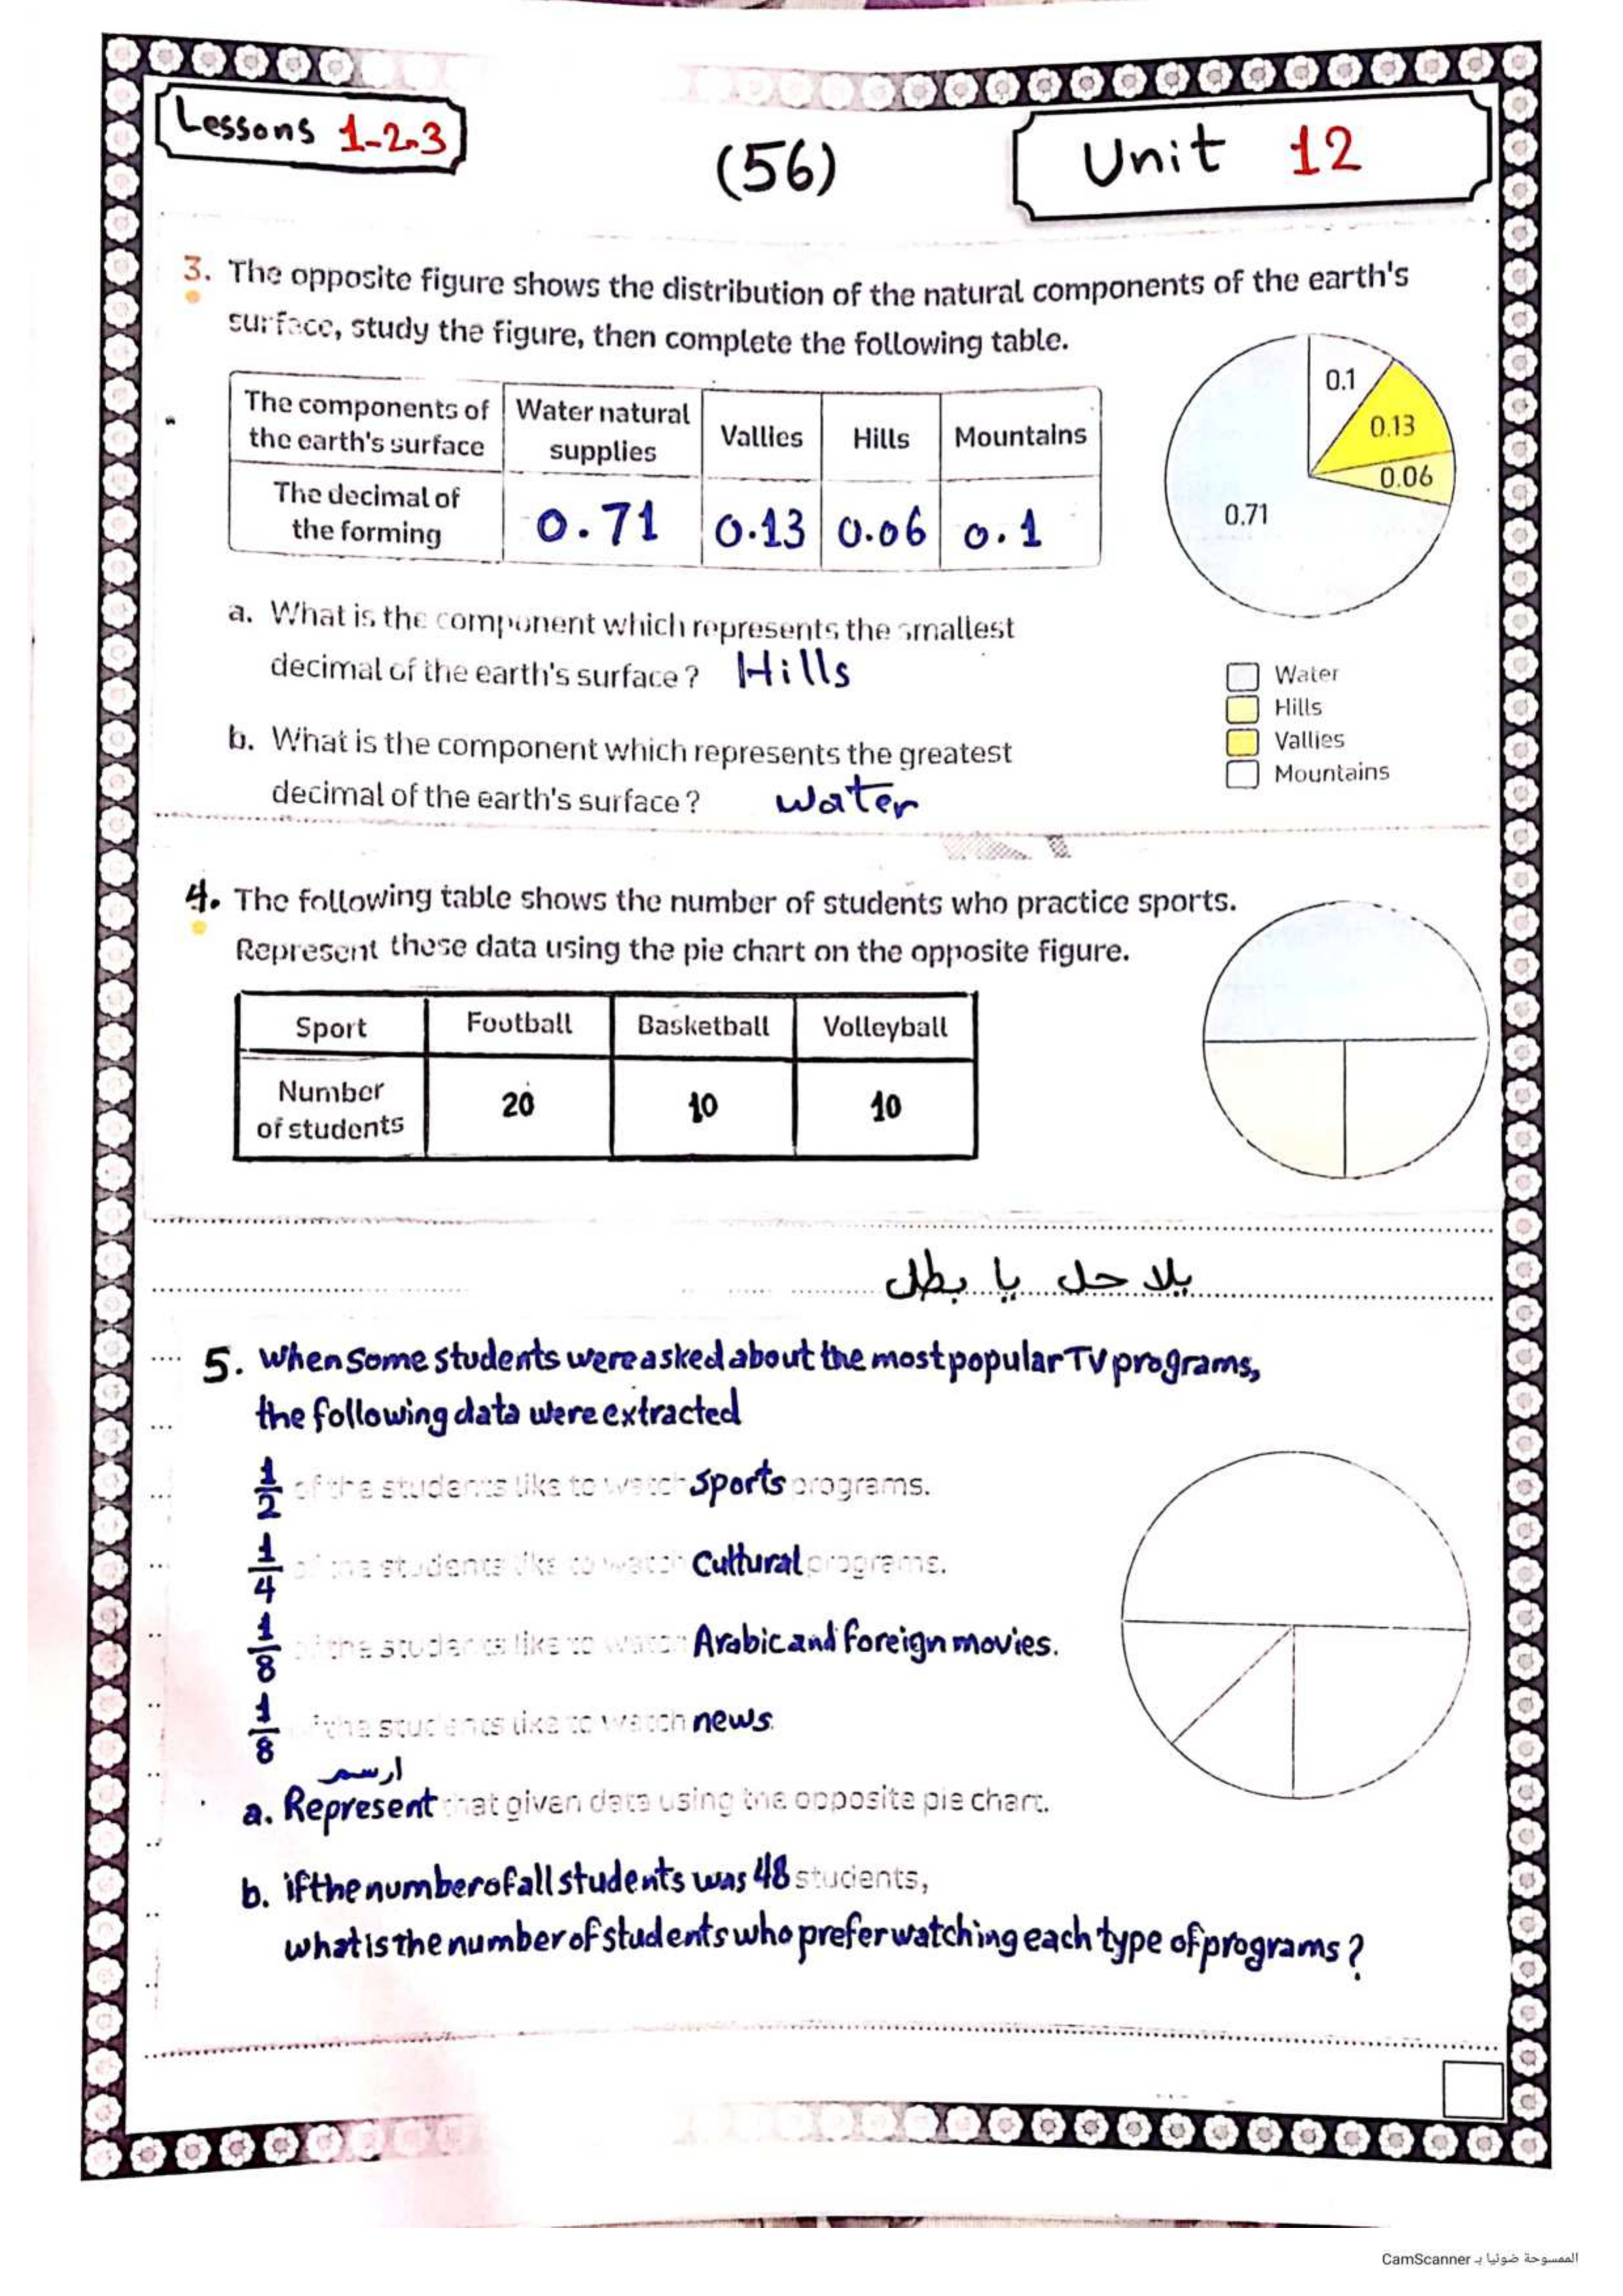 Lessons 1-2-3
(56)
Unit 12
3. The opposite figure shows the distribution of the natural components of the earth's
surface, study the figure, then complete the following table.
The components of the earth's surface | Water natural supplies | Vallies | Hills | Mountains
The decimal of the forming | 0.71 | 0.13 | 0.06 | 0.1
0.1
0.13
0.06
0.71
a. What is the component which represents the smallest
decimal of the earth's surface? Hills
b. What is the component which represents the greatest
decimal of the earth's surface? water
Water
Hills
Vallies
Mountains
4. The following table shows the number of students who practice sports.
Represent these data using the pie chart on the opposite figure.
Sport | Football | Basketball | Volleyball
Number of students | 20 | 10 | 10
يلا حل يا بطل
5. When some students were asked about the most popular TV programs,
the following data were extracted
1/2 of the students like to watch sports programs.
1/4 of the students like to watch Cultural programs.
1/8 of the students like to watch Arabic and foreign movies.
1/8 of the students like to watch news.
ارسم
a. Represent that given data using the opposite pie chart.
b. if the number of all students was 48 students,
what is the number of students who prefer watching each type of programs?
الممسوحة ضوئيا بـ CamScanner